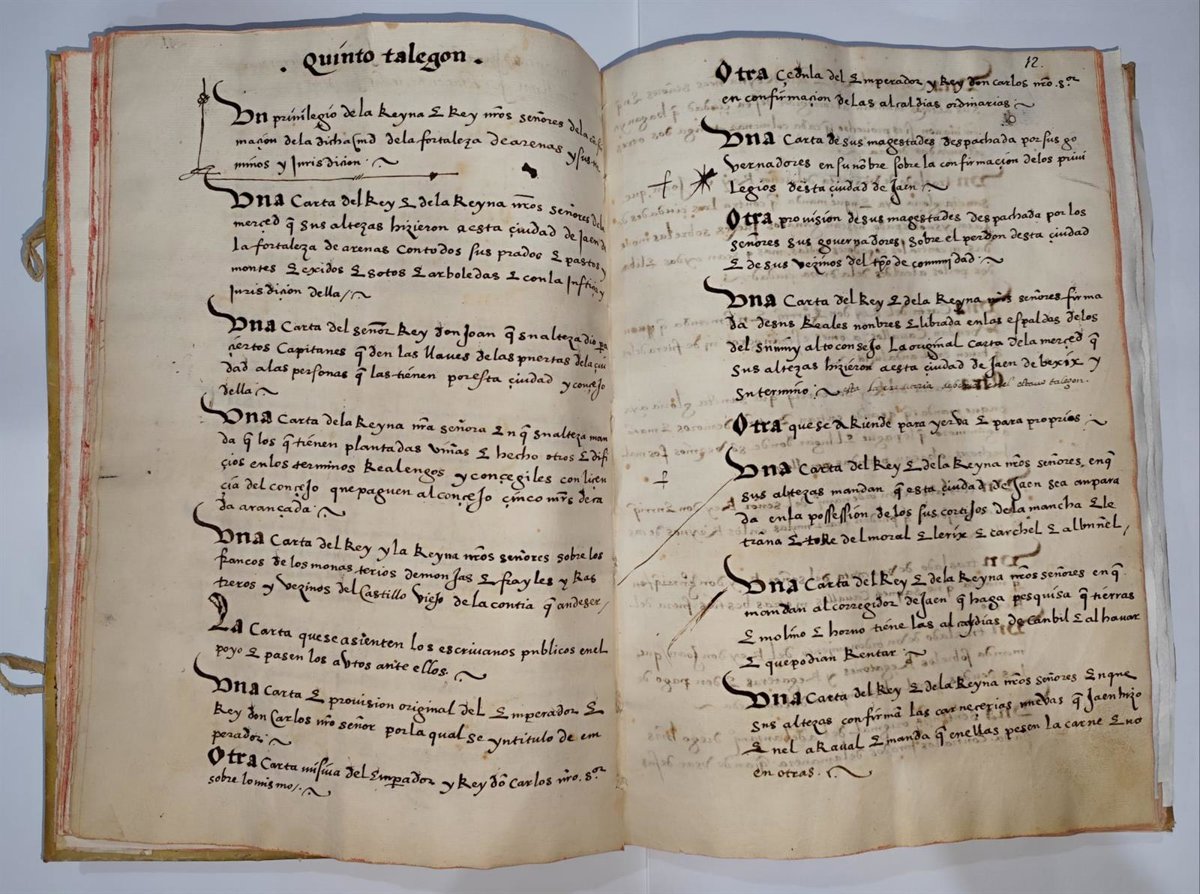 . Quinto talegon .
Vn priuilegio de la Reyna E Rey nr̃os señores de la
macion de la dicha md de la fortaleza de arenas y sus
minos y Jurisdicion
Vna Carta del Rey E de la Reyna nr̃os señores de la
merced q̃ sus altezas hizieron a esta ciudad de Jaen d
la fortaleza de arenas con todos sus prados E pastos y
montes E exidos E sotos E arboledas E con la Justiçia y
Jurisdicion della
Vna Carta del señor Rey don Joan q̃ su alteza dio pa
çiertos Capitanes q̃ den las llaves de las puertas de la ciu
dad a las personas q̃ las tienen por esta çiudad y conçejo
della
Vna Carta de la Reyna nr̃a señora En q̃ su alteza man
da q̃ los q̃ tienen plantadas viñas E hecho otros Edifi
çios en los terminos Realengos y conçegiles con liçen
çia del conçejo que paguen al conçejo çinco mr̃s de ca
da arançada
Vna Carta del Rey y la Reyna nr̃os señores sobre los
francos de los monasterios de monjas E frayles y Ras
treros y vezinos del Castillo viejo de la contia q̃ an de ser
La Carta que se asienten los escriuanos publicos en el
poyo E pasen los autos ante ellos.
Vna Carta E provision original del Emperador E
Rey don Carlos nr̃o señor por la qual se yntitulo de em
perador
Otra Carta misiva del Emperador y Rey dõ Carlos nr̃o. s.or
sobre lo mismo
12.
Otra Çedula del Emperador y Rey don carlos nr̃o s.or
en confirmaçion de las alcaldias ordinarias
Vna Carta de sus magestades despachada por sus go
vernadores en su nõbre sobre la confirmaçion de los privi
Legios desta ciudad de Jaen
Otra provision de sus magestades despachada por los
señores sus governadores sobre el perdon desta ciudad
E de sus vezinos del tp̃o de comunidad
Vna Carta del Rey E de la Reyna nr̃os señores firma
da de sus Reales nonbres E librada en las espaldas de los
del su muy alto consejo La original Carta de la merced q̃
sus altezas hizieron a esta ciudad de Jaen de bexix y
su termino el otauo talegon.
Otra que se aRiende para yerva E para proprios
Vna Carta del Rey E de la Reyna nr̃os señores, en q̃
sus altezas mandan q̃ esta ciudad de Jaen sea anpara
da en la possession de los sus cortijos de la mancha E le
trana E toRe del moral E lerix E carchel E albuñel
Vna Carta del Rey E de la Reyna nr̃os señores en q̃
mandan al corregidor de Jaen q̃ haga pesquisa q̃ tierras
E molino E horno tiene las alcaydias de Canbil E alhauar
E que podian Rentar
Vna Carta del Rey E de la Reyna nr̃os señores En que
sus altezas confirmã las carneçerias nuevas q̃ Jaen hizo
E nel aRaval E manda q̃ en ellas pesen la carne E no
en otras.